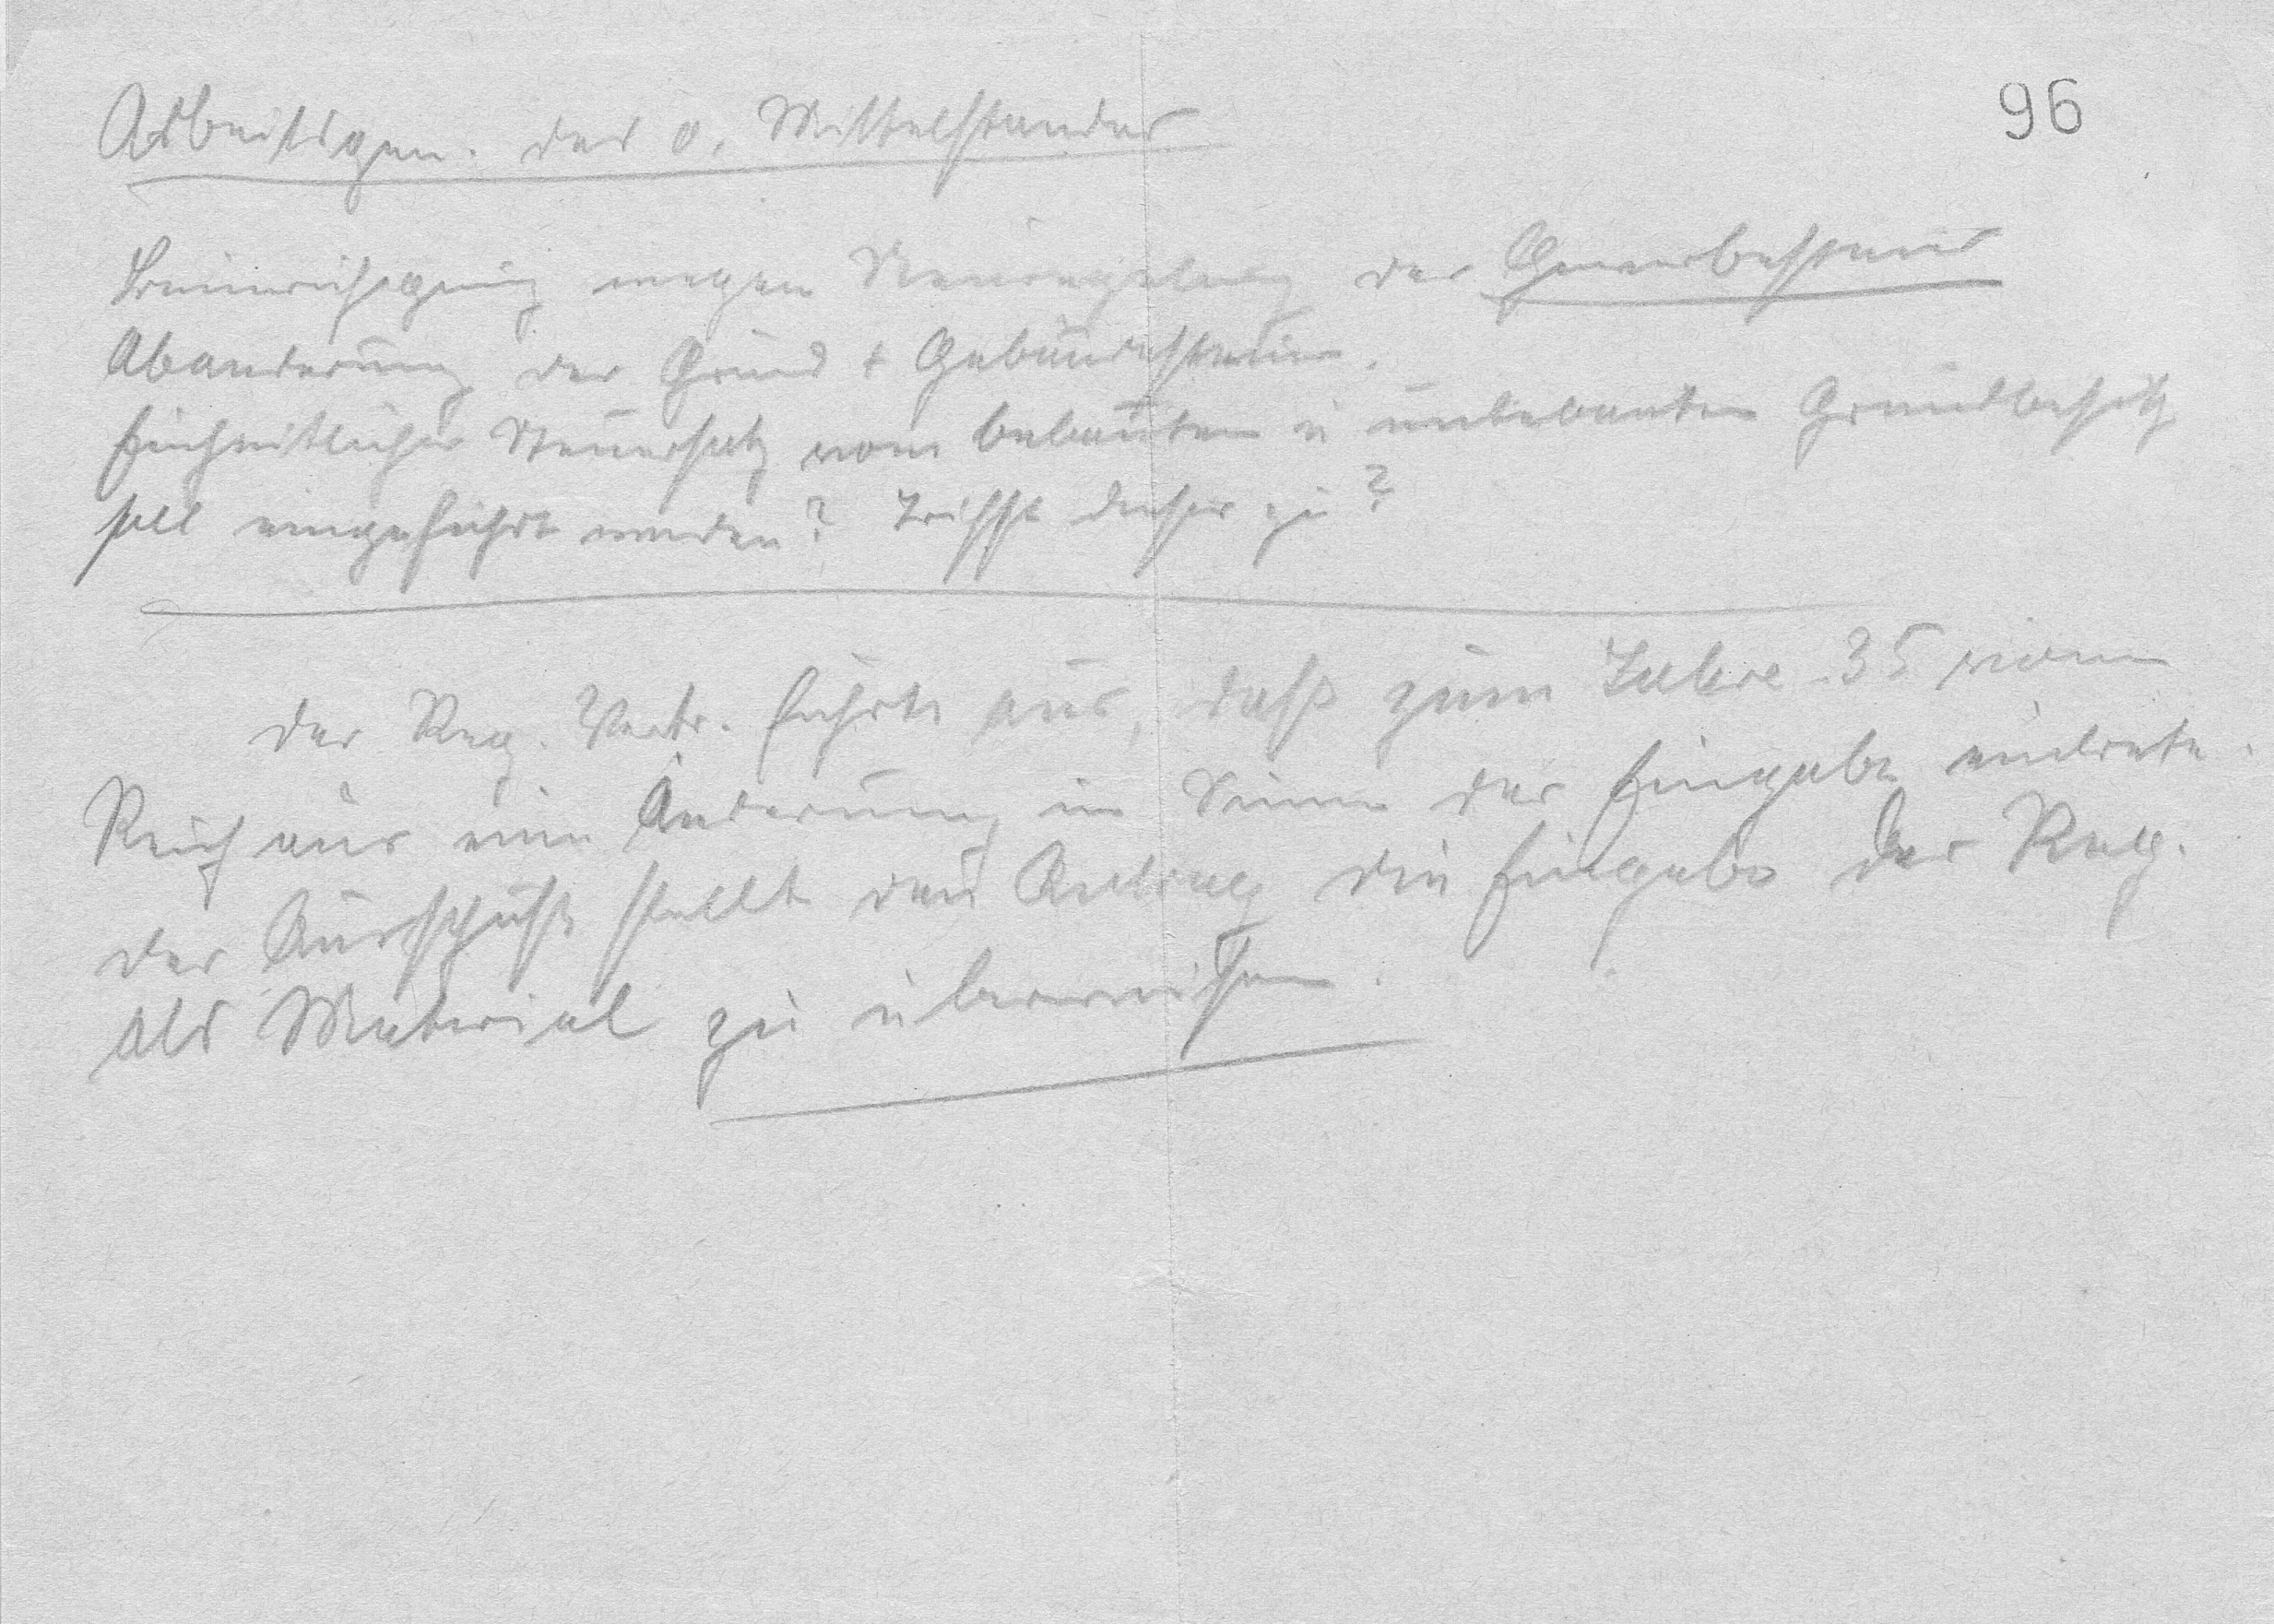 96
Arbeitsgem. des d. Mittelstandes
wegen Neuregelung der Gewerbesteuer
Abanderung der Grund + Gebäudesteuer.
Einheitlicher Steuersatz vom bebauten u unbebauten Grundbesitz
soll eingeführt werden? Trifft dieses zu?
Der Reg. Vertr. führte aus, daß zum Jahre 35 vom
Reich aus eine Änderung im Sinne der Eingabe eintrete.
Der Ausschuß stellt den Antrag die Eingabe der Reg.
als Material zu überweisen.